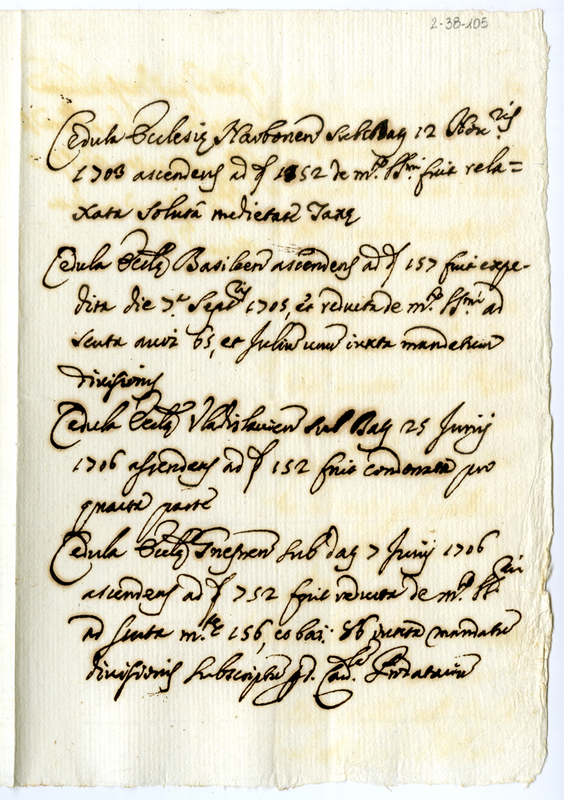 2-38-105
Cedula Ecclesię Narbonen sub dag 12 9bris
1703 ascendens ad ∫ 1852 de m.to SS.mi fuit rela=
xata soluta medietate Taxę
Cedula Eccl.ę Basileen ascendens ad ∫ 157 fuit expe-
dita die 7.a Sept.ris 1705, et reducta de m.to SS.mi ad
scuta auri 65, et Julium unum iuxta mandatum
divisionis
Cedula Eccl.ę Vladislavien sub dag 25 Junij
1706 ascendens ad ∫ 152 fuit condonata pro
quarta parte
Cedula Eccl.ę Gnesnen sub dag 7 Junij 1706
ascendens ad ∫ 752 fuit reducta de m.to SS.mi
ad scuta m.te 156, et bai: 86 iuxta mandatum
divisionis subscriptum